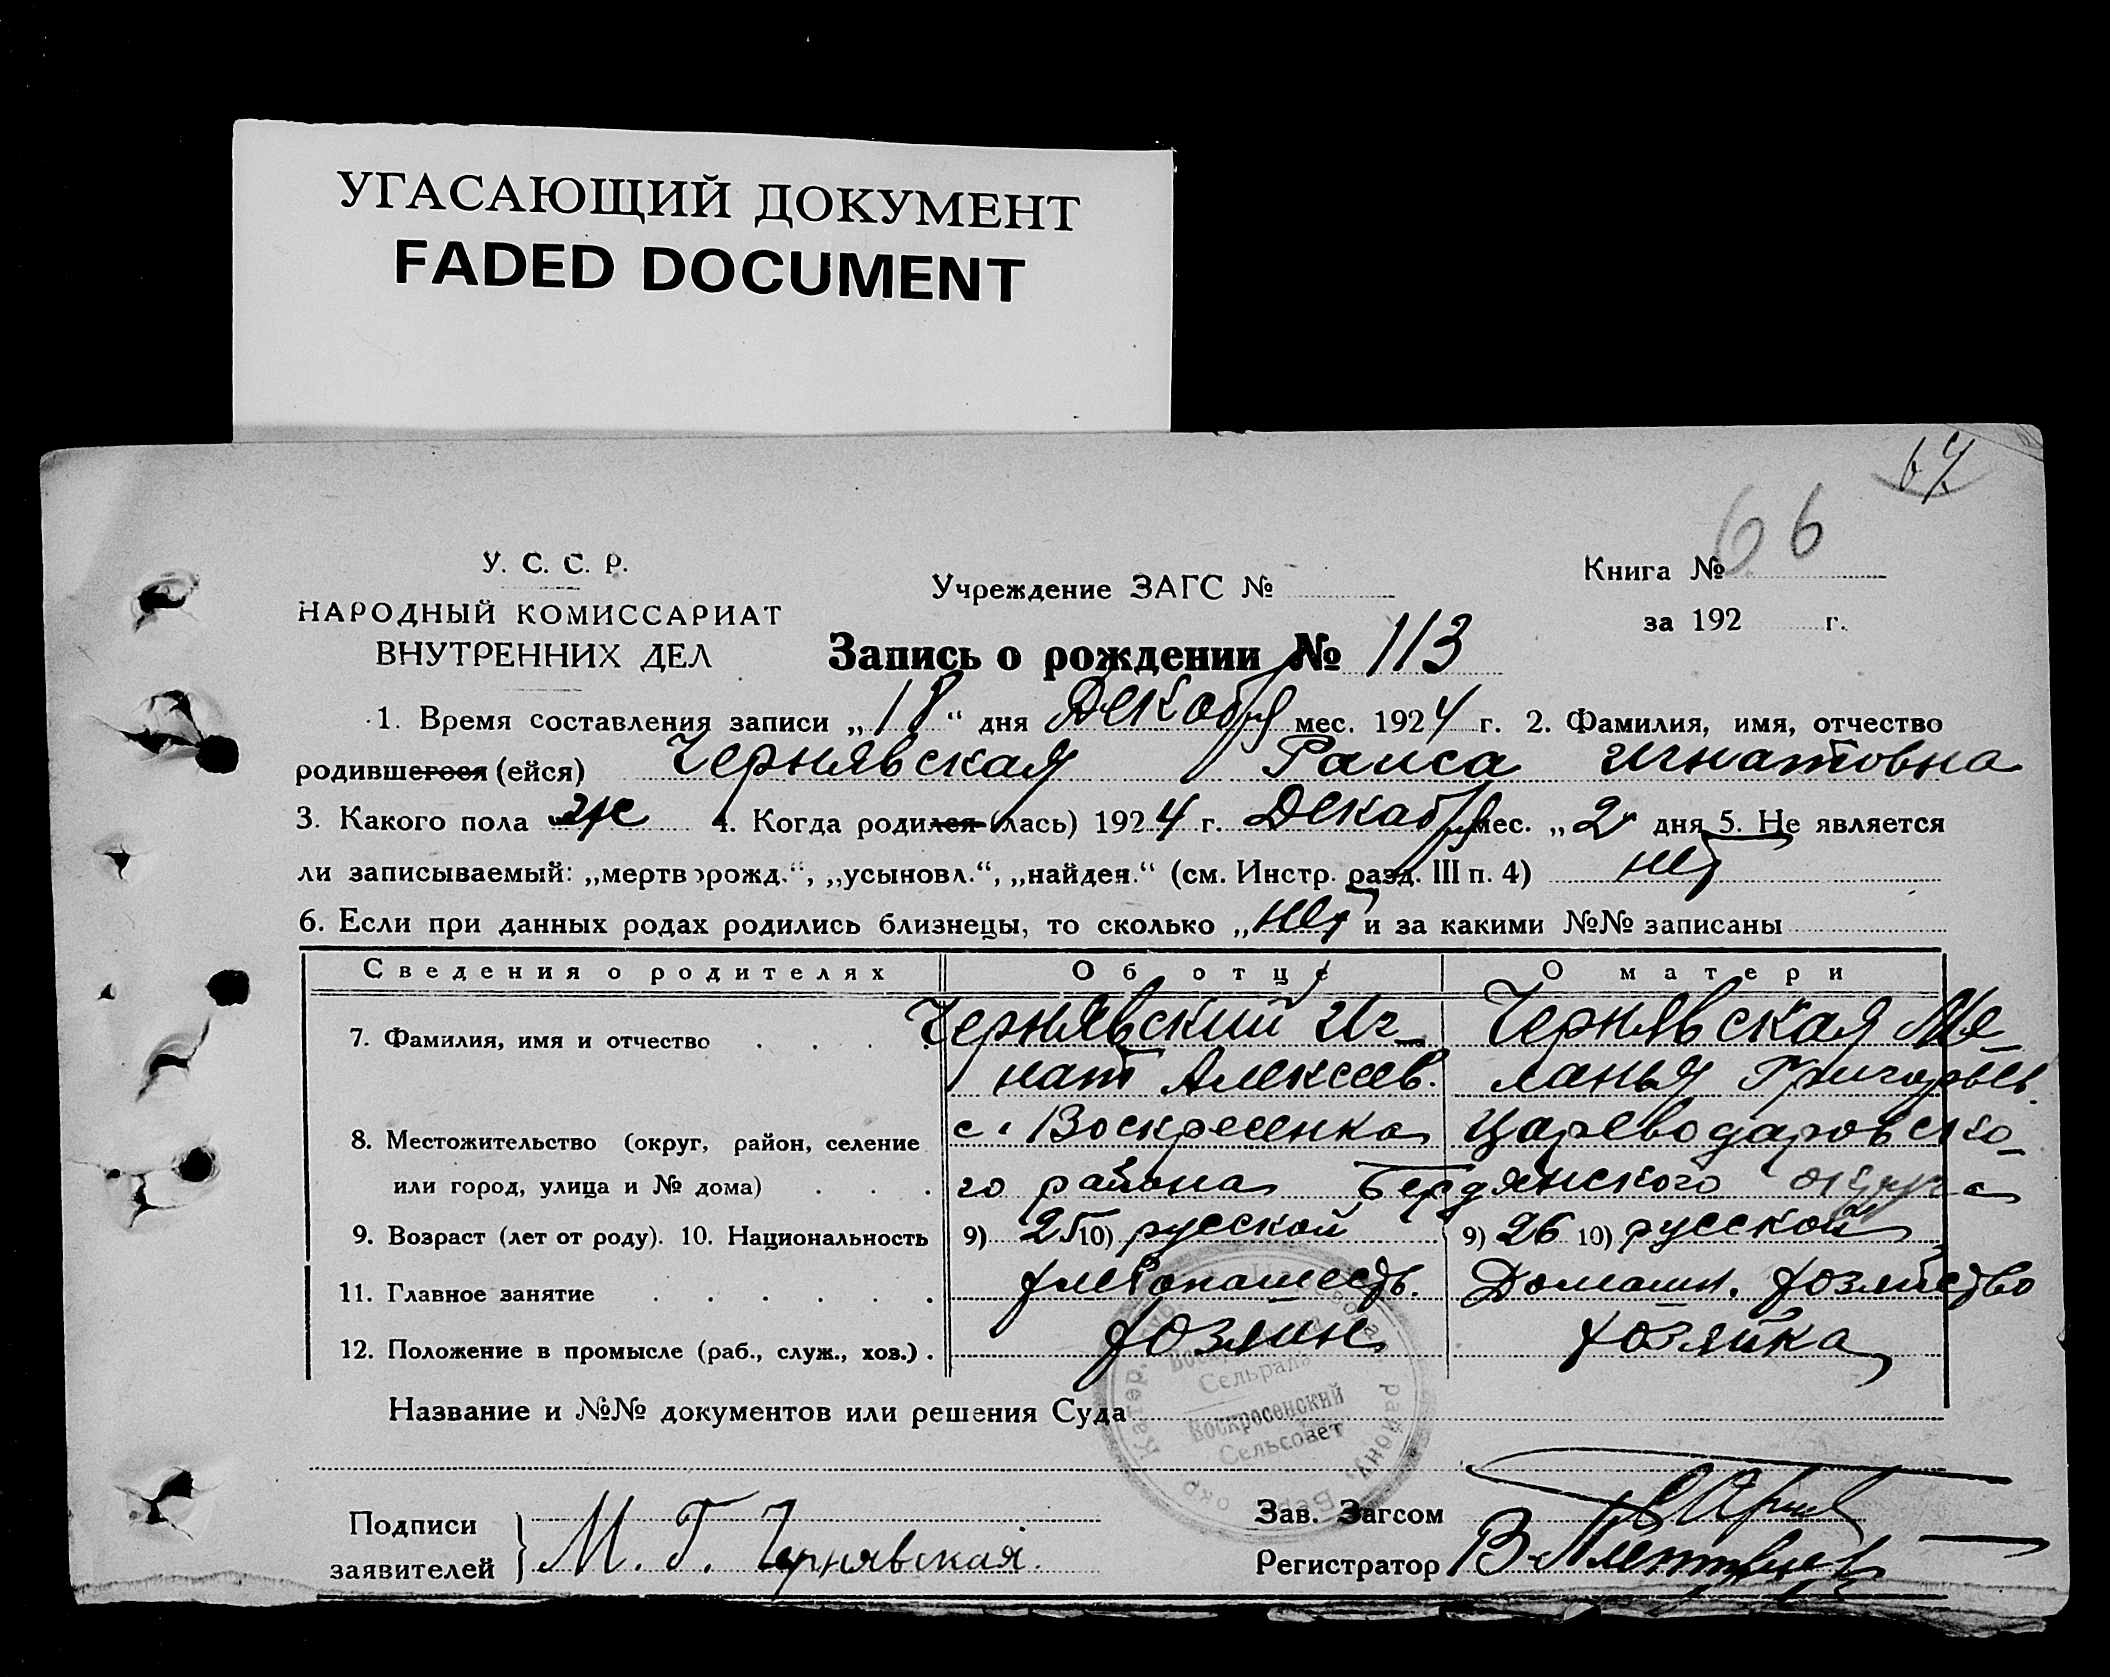 УГАСАЮЩИЙ ДОКУМЕНТ
FADED DOCUMENT
67
66
У. С. С. Р.
НАРОДНЫЙ КОМИССАРИАТ
ВНУТРЕННИХ ДЕЛ
Учреждение ЗАГС №
Книга №
за 192 г.
Запись о рождении № 113
1. Время составления записи „18“ дня Декабря мес. 1924 г. 2. Фамилия, имя, отчество
родившегося (ейся) Чернявская Раиса Игнатовна
3. Какого пола ж 4. Когда родился (лась) 1924 г. Декабря мес. „2 дня 5. Не является
ли записываемый: „мертворожд.“, „усыновл.“, „найден.“ (см. Инстр. разд. III п. 4) нет
6. Если при данных родах родились близнецы, то сколько „нет и за какими №№ записаны
Сведения о родителях Об отце О матери
7. Фамилия, имя и отчество Чернявский Иг- Чернявская Ме-
нат Алексеев. ланья Григорьев.
8. Местожительство (округ, район, селение с. Воскресенка Цареводаровско-
или город, улица и № дома) го района Бердянского округа
9. Возраст (лет от роду). 10. Национальность 9) 25 10) русской 9) 26 10) русской
11. Главное занятие хлебопашеств. Домашн. хозяйство
12. Положение в промысле (раб., служ., хоз.) хозяин хозяйка
Название и №№ документов или решения Суда
Воскресенский
Сельсовет
Подписи
заявителей М. Г. Чернявская.
Зав. Загсом
Регистратор